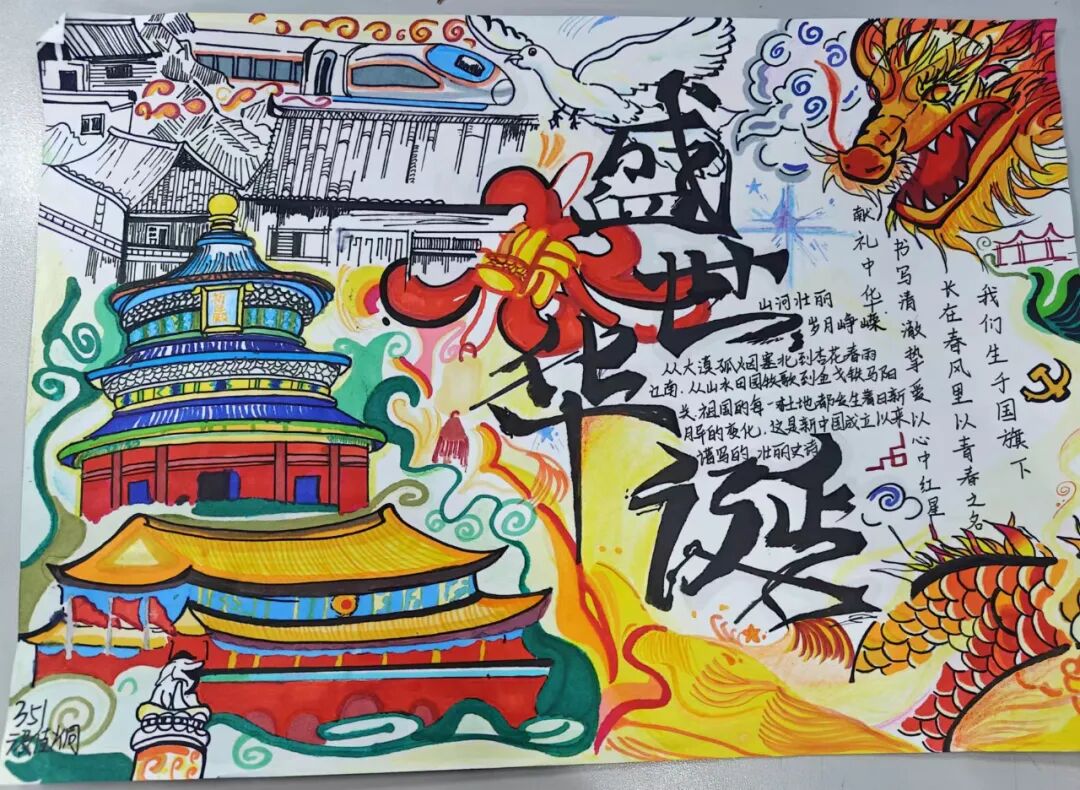 盛世
华诞
我们生于国旗下
长在春风里以青春之名
书写清澈挚爱以心中红星
献礼中华.
山河壮丽
岁月峥嵘
从大漠孤烟塞北到杏花春雨
江南,从山水田园牧歌到金戈铁马阳
关,祖国的每一寸土地都发生着日新
月异的变化,这是新中国成立以来
谱写的,壮丽史诗
351